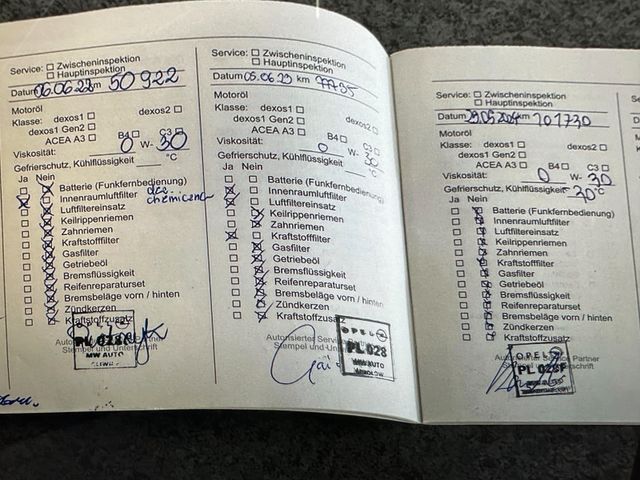 Service: Zwischeninspektion
Hauptinspektion
Datum 06.06.22 km 50 922
Motoröl
Klasse: dexos1 dexos2
dexos1 Gen2
ACEA A3 B4 C3
Viskosität: 0 W- 30
Gefrierschutz, Kühlflüssigkeit °C
Ja Nein
Batterie (Funkfernbedienung)
Innenraumluftfilter
Luftfiltereinsatz
Keilrippenriemen
Zahnriemen
Kraftstofffilter
Gasfilter
Getriebeöl
Bremsflüssigkeit
Reifenreparaturset
Bremsbeläge vorn / hinten
Zündkerzen
Kraftstoffzusatz
OPEL
PL 028
MW AUTO
Service: Zwischeninspektion
Hauptinspektion
Datum 05.06.23 km 77795
Motoröl
Klasse: dexos1 dexos2
dexos1 Gen2
ACEA A3 B4 C3
Viskosität: 0 W- 30
Gefrierschutz, Kühlflüssigkeit °C
Ja Nein
Batterie (Funkfernbedienung)
Innenraumluftfilter
Luftfiltereinsatz
Keilrippenriemen
Zahnriemen
Kraftstofffilter
Gasfilter
Getriebeöl
Bremsflüssigkeit
Reifenreparaturset
Bremsbeläge vorn / hinten
Zündkerzen
Kraftstoffzusatz
OPEL
PL 028
MW AUTO
Service: Zwischeninspektion
Hauptinspektion
Datum 2024 km 101730
Motoröl
Klasse: dexos1 dexos2
dexos1 Gen2
ACEA A3 B4 C3
Viskosität: 0 W- 30
Gefrierschutz, Kühlflüssigkeit 30°C
Ja Nein
Batterie (Funkfernbedienung)
Innenraumluftfilter
Luftfiltereinsatz
Keilrippenriemen
Zahnriemen
Kraftstofffilter
Gasfilter
Getriebeöl
Bremsflüssigkeit
Reifenreparaturset
Bremsbeläge vorn / hinten
Zündkerzen
Kraftstoffzusatz
Autorisierter Service Partner
OPEL
PL 028F
MW AUTO